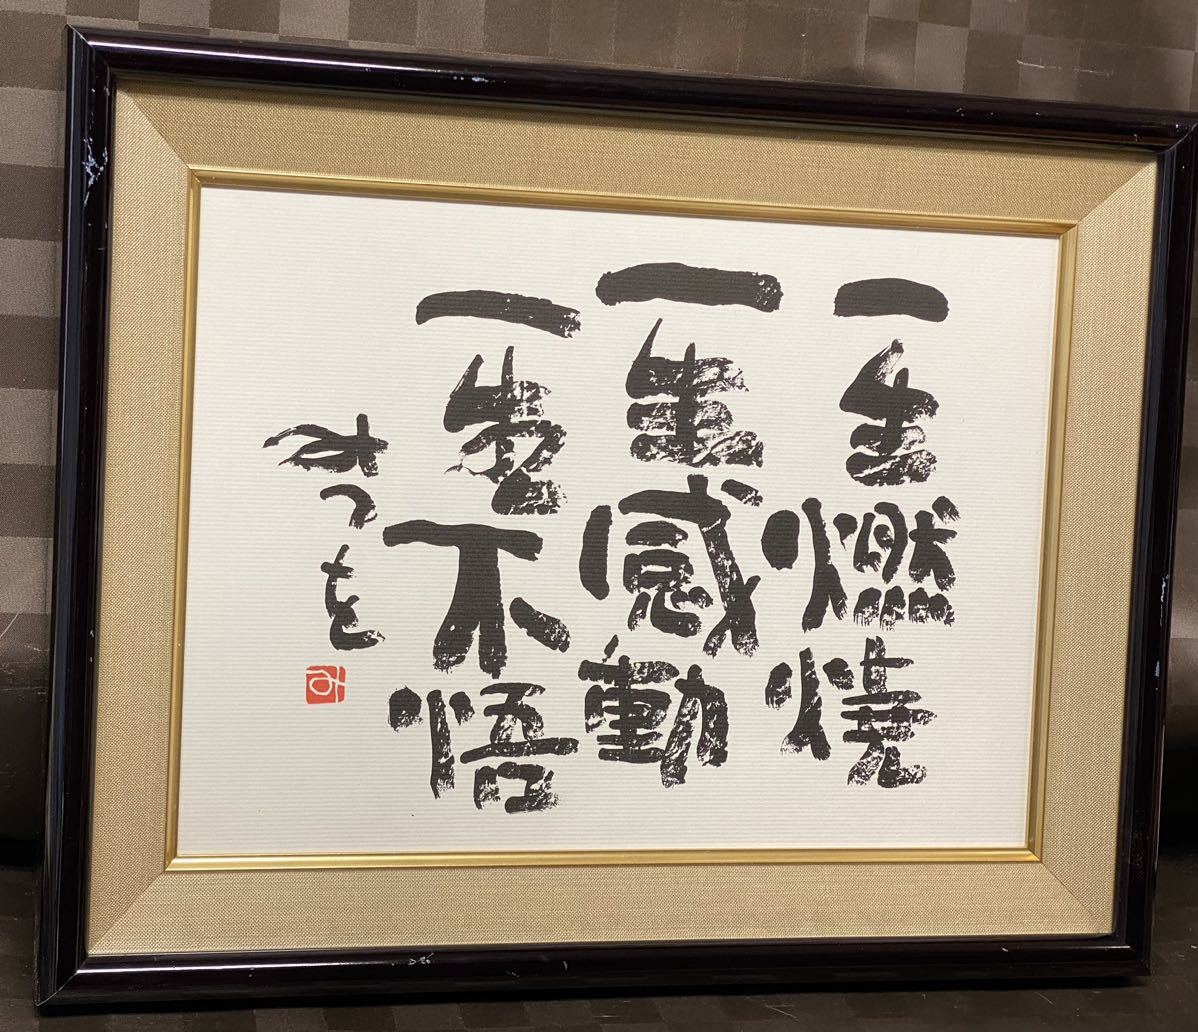 一生燃焼
一生感動
一生不悟
みつを